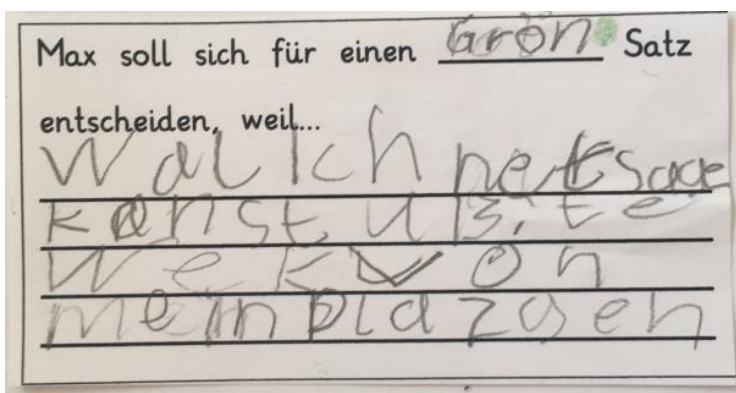 Max soll sich für einen Grön Satz
entscheiden, weil...
Wal Ich net sage
kanst u Bite
wek von
mein Plaz gen